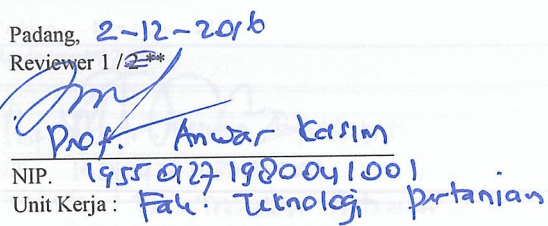 Padang, 2-12-2016
Reviewer 1 / 2 **
Prof. Anwar Kasim
NIP. 19550127 198004 1 001
Unit Kerja : Fak. Teknologi Pertanian